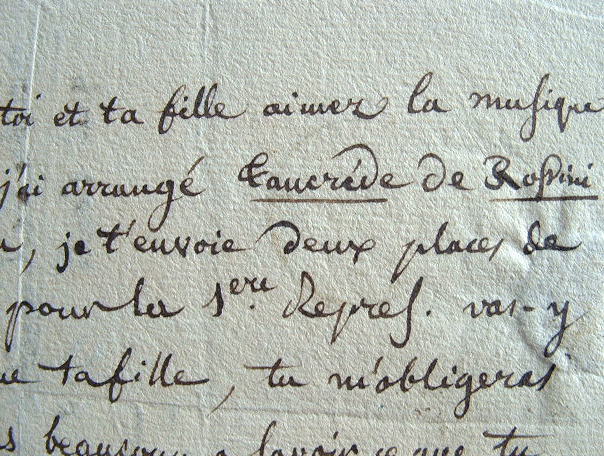 toi et ta fille aimez la musique
j'ai arrangé Tancrède de Rossini
je t'envoie deux places de
pour la 1ere Repres. vas-y
ta fille, tu m'obligeras
beaucoup a savoir ce que tu